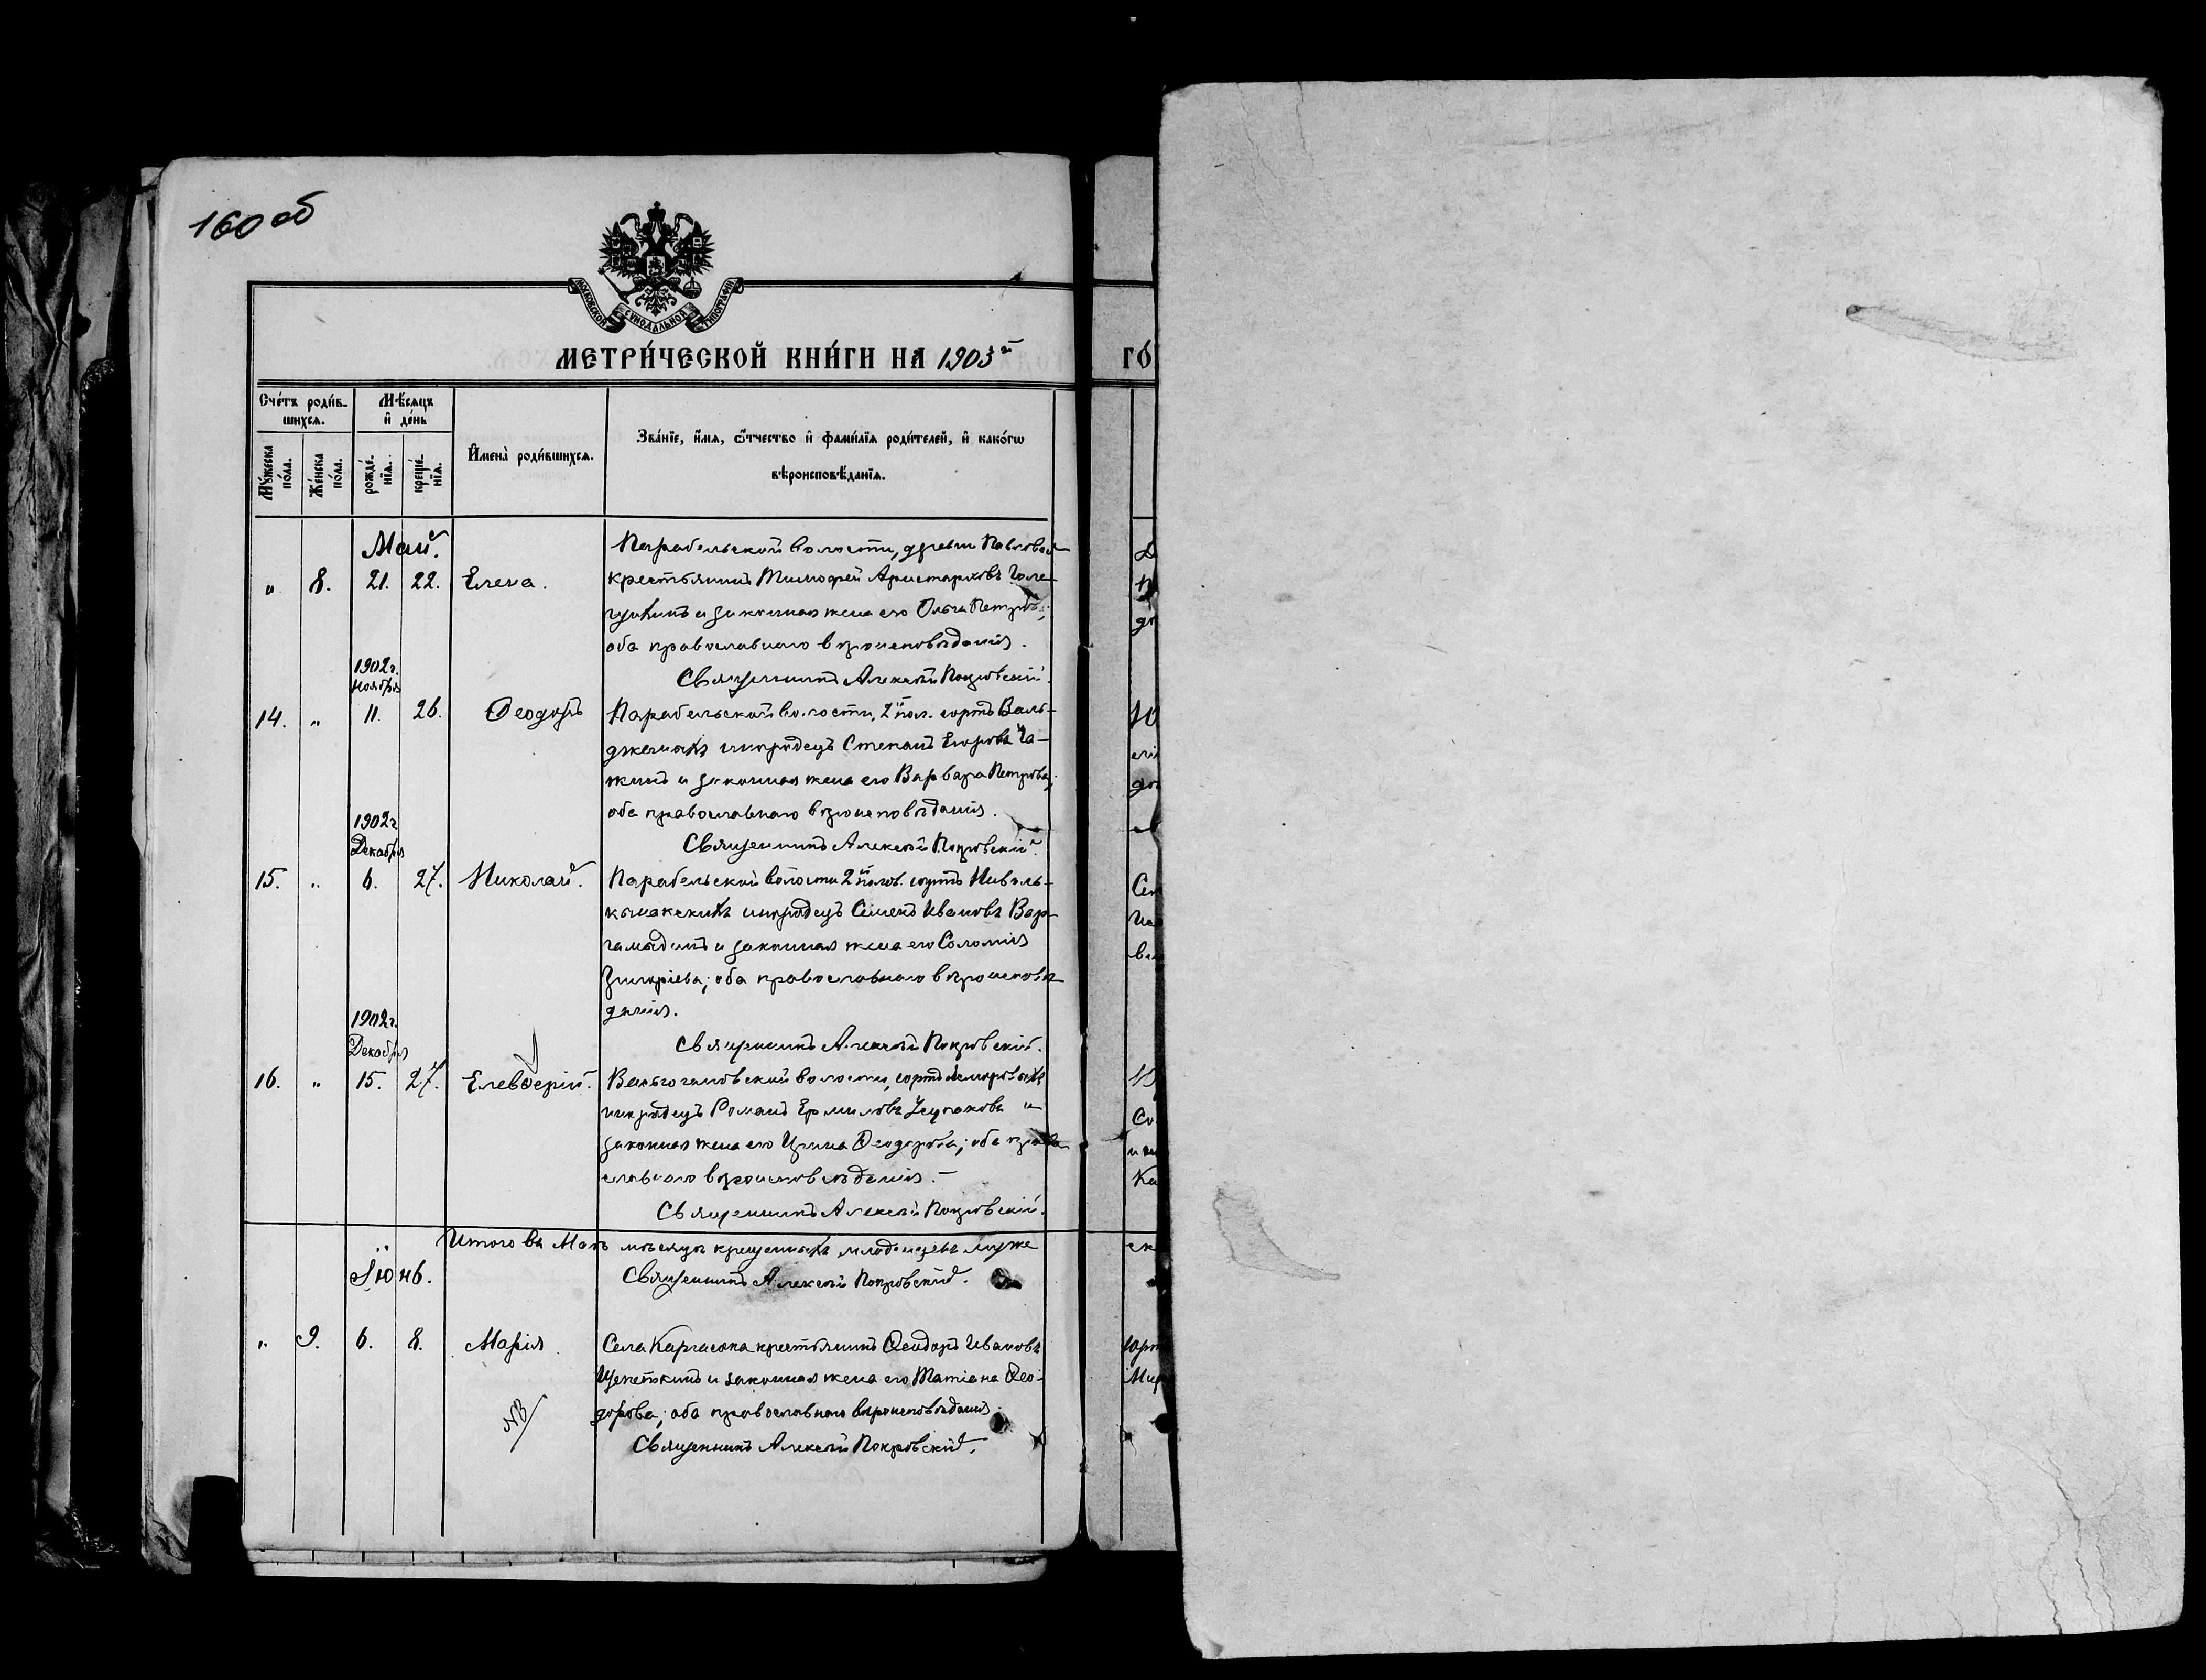 160 об
МОСКОВСКОЙ СѴНОДАЛЬНОЙ ТИПОГРАФІИ
МЕТРИ́ЧЕСКОЙ КНИ́ГИ НА 1903й
ГО́
Сче́тъ роди́вшихся.
Мѣсяцъ и҆ де́нь
Му́жеска по́ла.
Же́нска по́ла.
рожде́нїя.
креще́нїя.
И҆мена̀ роди́вшихся.
Зва́нїе, и҆́мя, ѻ҆́тчество и҆ фами́лїя роди́телей, и҆ како́гѡ
вѣроисповѣ́данїя.
Май.
Парабельской волости,
„ 8. 21. 22. Елена.
крестьянинъ Тимофей Аристарховъ Голе-
и законная жена его Ольга Петрова;
оба православнаго вѣроисповѣданія.
Священникъ Алексѣй Покровскій.
1902г.
Ноября
14. „ 11. 26. Ѳеодоръ
Парабельской волости, 2й пол. юртъ Валь-
джемскихъ инородецъ Степанъ Егоровъ Ча-
жинъ и законная жена его Варвара Петрова;
оба православнаго вѣроисповѣданія.
Священникъ Алексѣй Покровскій.
1902г.
Декабря
15. „ 6. 27. Николай.
Парабельской волости 2й полов. юртъ
инородецъ Семенъ Ивановъ Вар-
гамадинъ и законная жена его Соломія
Григоріева; оба православнаго вѣроисповѣ-
данія.
Священникъ Алексѣй Покровскій.
1902г.
Декабря
16. „ 15. 27. Елевѳерій.
волости, юртъ
инородецъ Романъ Ермиловъ и
законная жена его Ирина Ѳеодорова; оба право-
славнаго вѣроисповѣданія.
Священникъ Алексѣй Покровскій.
Итого въ Маѣ мѣсяцѣ крещенныхъ младенцевъ муже
Священникъ Алексѣй Покровскій.
Іюнь.
„ 9. 6. 8. Марія.
Села Каргасока крестьянинъ Ѳеодоръ Ивановъ
Щепеткинъ и законная жена его Татіана Ѳео-
дорова; оба православнаго вѣроисповѣданія.
NB
Священникъ Алексѣй Покровскій.